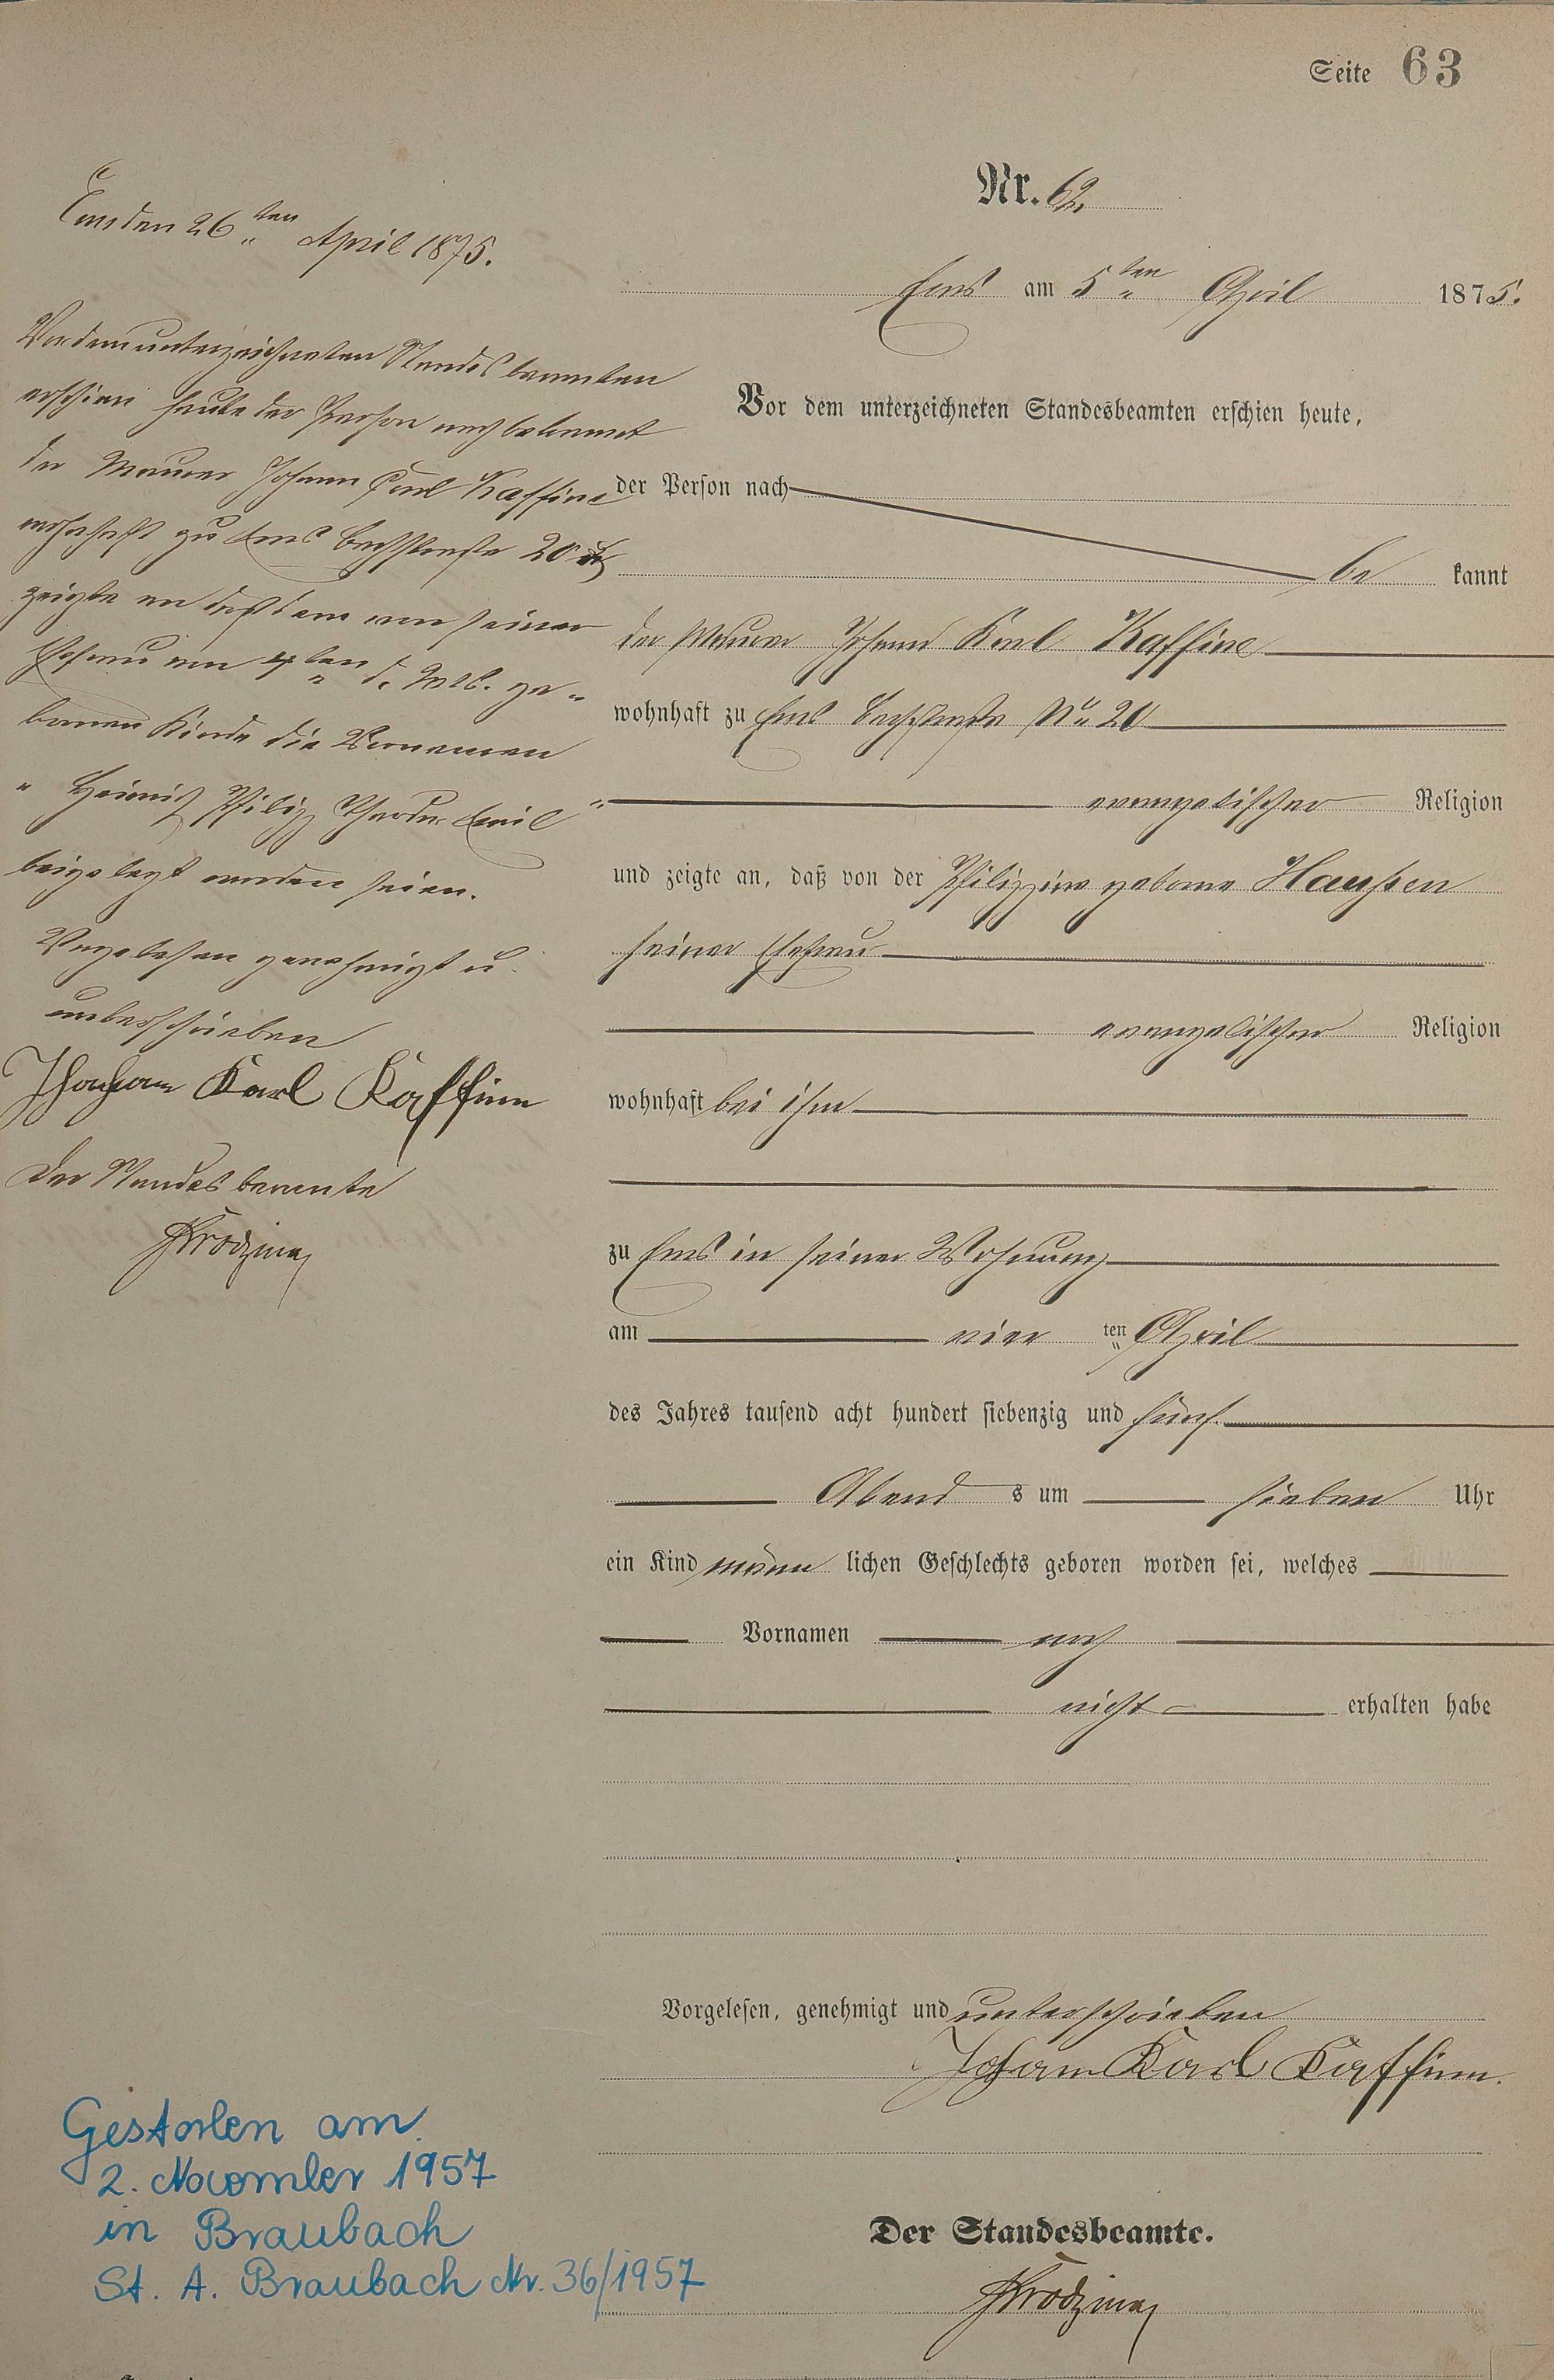 Seite 63
Nr. 62.
Ems am 5ten April 1875.
Vor dem unterzeichneten Standesbeamten erschien heute,
der Person nach
be kannt
der Maurer Johann Karl Kaffine
wohnhaft zu Ems Bachstraße No 20
evangelischer Religion
und zeigte an, daß von der Philippine geborne Haußen
seiner Ehefrau
evangelischer Religion
wohnhaft bei ihm
zu Ems in seiner Wohnung
am vier ten April
des Jahres tausend acht hundert siebenzig und fünf
Abend s um sieben Uhr
ein Kind männ lichen Geschlechts geboren worden sei, welches
Vornamen noch
nicht erhalten habe
Vorgelesen, genehmigt und unterschrieben
Johann Karl Kaffine.
Der Standesbeamte.
Ems den 26ten April 1875.
Vor dem unterzeichneten Standesbeamten
erschien heute der Person nach bekannt
der Maurer Johann Carl Kaffine
wohnhaft zu Ems Bachstraße 20
zeigte an daß dem von seiner
Ehefrau am 4ten d. Mts. ge-
borenen Kinde die Vornamen
"Heinrich Philipp Theodor Emil"
beigelegt worden seien.
Vorgelesen genehmigt u.
unterschrieben
Johann Karl Kaffine
Der Standesbeamte
Gestorben am
2. November 1957
in Braubach
St. A. Braubach Nr. 36/1957